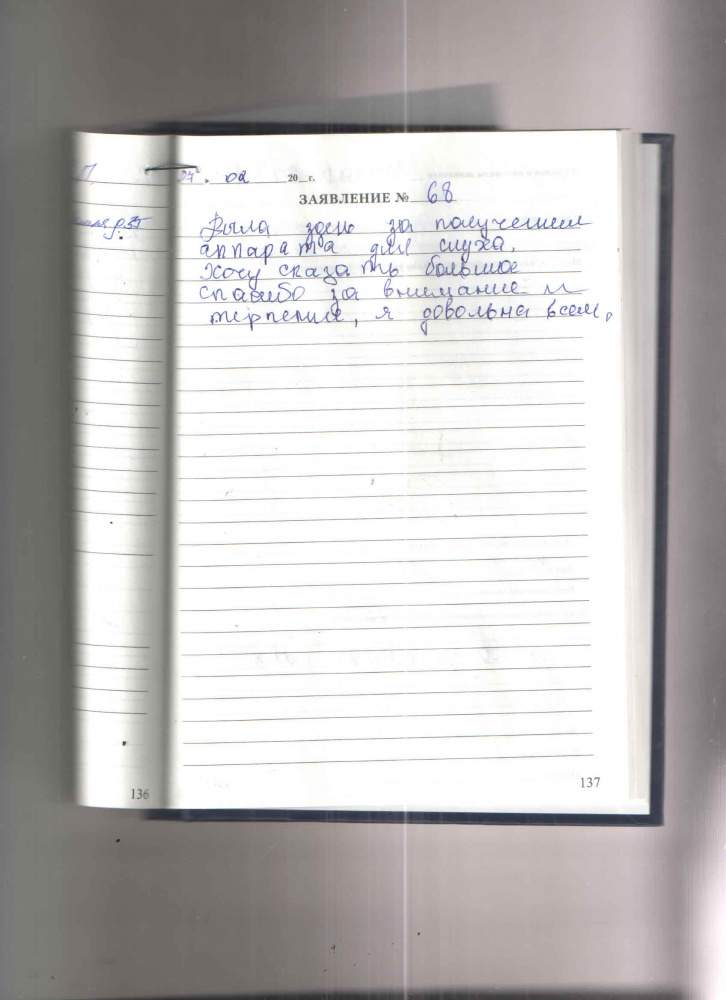 27. 02 20_г.
ЗАЯВЛЕНИЕ № 68
Была здесь за получением
аппарата для слуха.
Хочу сказать большое
спасибо за внимание и
терпение, я довольна всем.
136
137